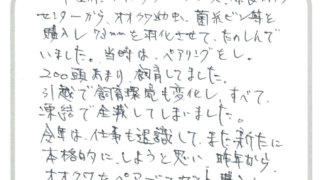 センターから、オオクワ幼虫、菌糸ビン等を
購入し73mmを羽化させて、たのしんで
いました。当時は、ペアリングをし、
200頭あまり、飼育してました。
引越で飼育環境も変化し、すべて、
凍結で全滅してしまいました。
今年は、仕事も退職して、また新たに
本格的に、しようと思い、昨年から、